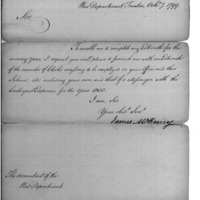 War Department Trenton, Octo. 7. 1799
Sir,
To enable me to complete my Estimate for the
ensuing year, I request you will please to furnish me with an Estimate
of the number of Clerks necessary to be employed in your Office and their
Salaries also including your own and that of a Messenger with the
Contingent Expences for the Year 1800.
I am, Sir
Your obed. Serv.
James McHenry
The accountant of the
War Department